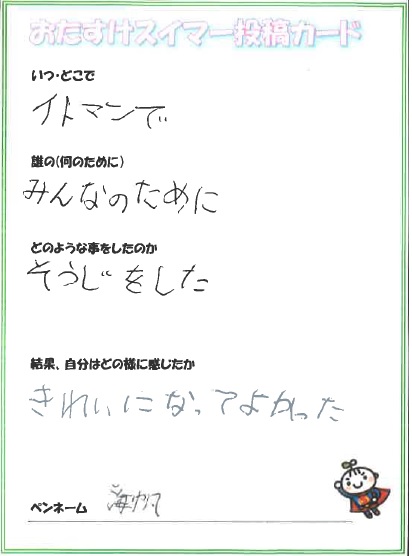 おたすけスイマー投稿カード
いつ・どこで
イトマンで
誰の(何のために)
みんなのために
どのような事をしたのか
そうじをした
結果、自分はどの様に感じたか
きれいになってよかった
ペンネーム